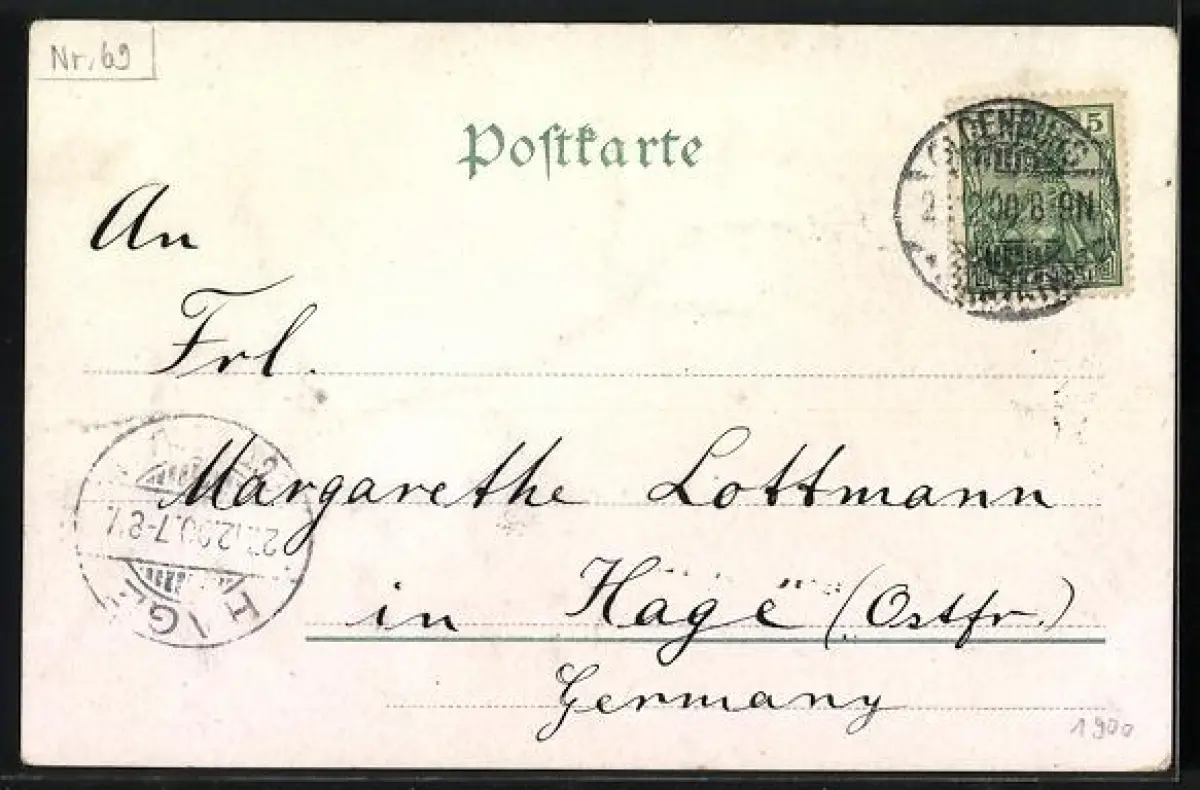 Nr. 69
Postkarte
5
OLDENBURG
2 .12.00.8-9N
An
Frl.
Margarethe Lottmann
in Hage (Ostfr.)
Germany
HAGE
.12.00.7-8
1900